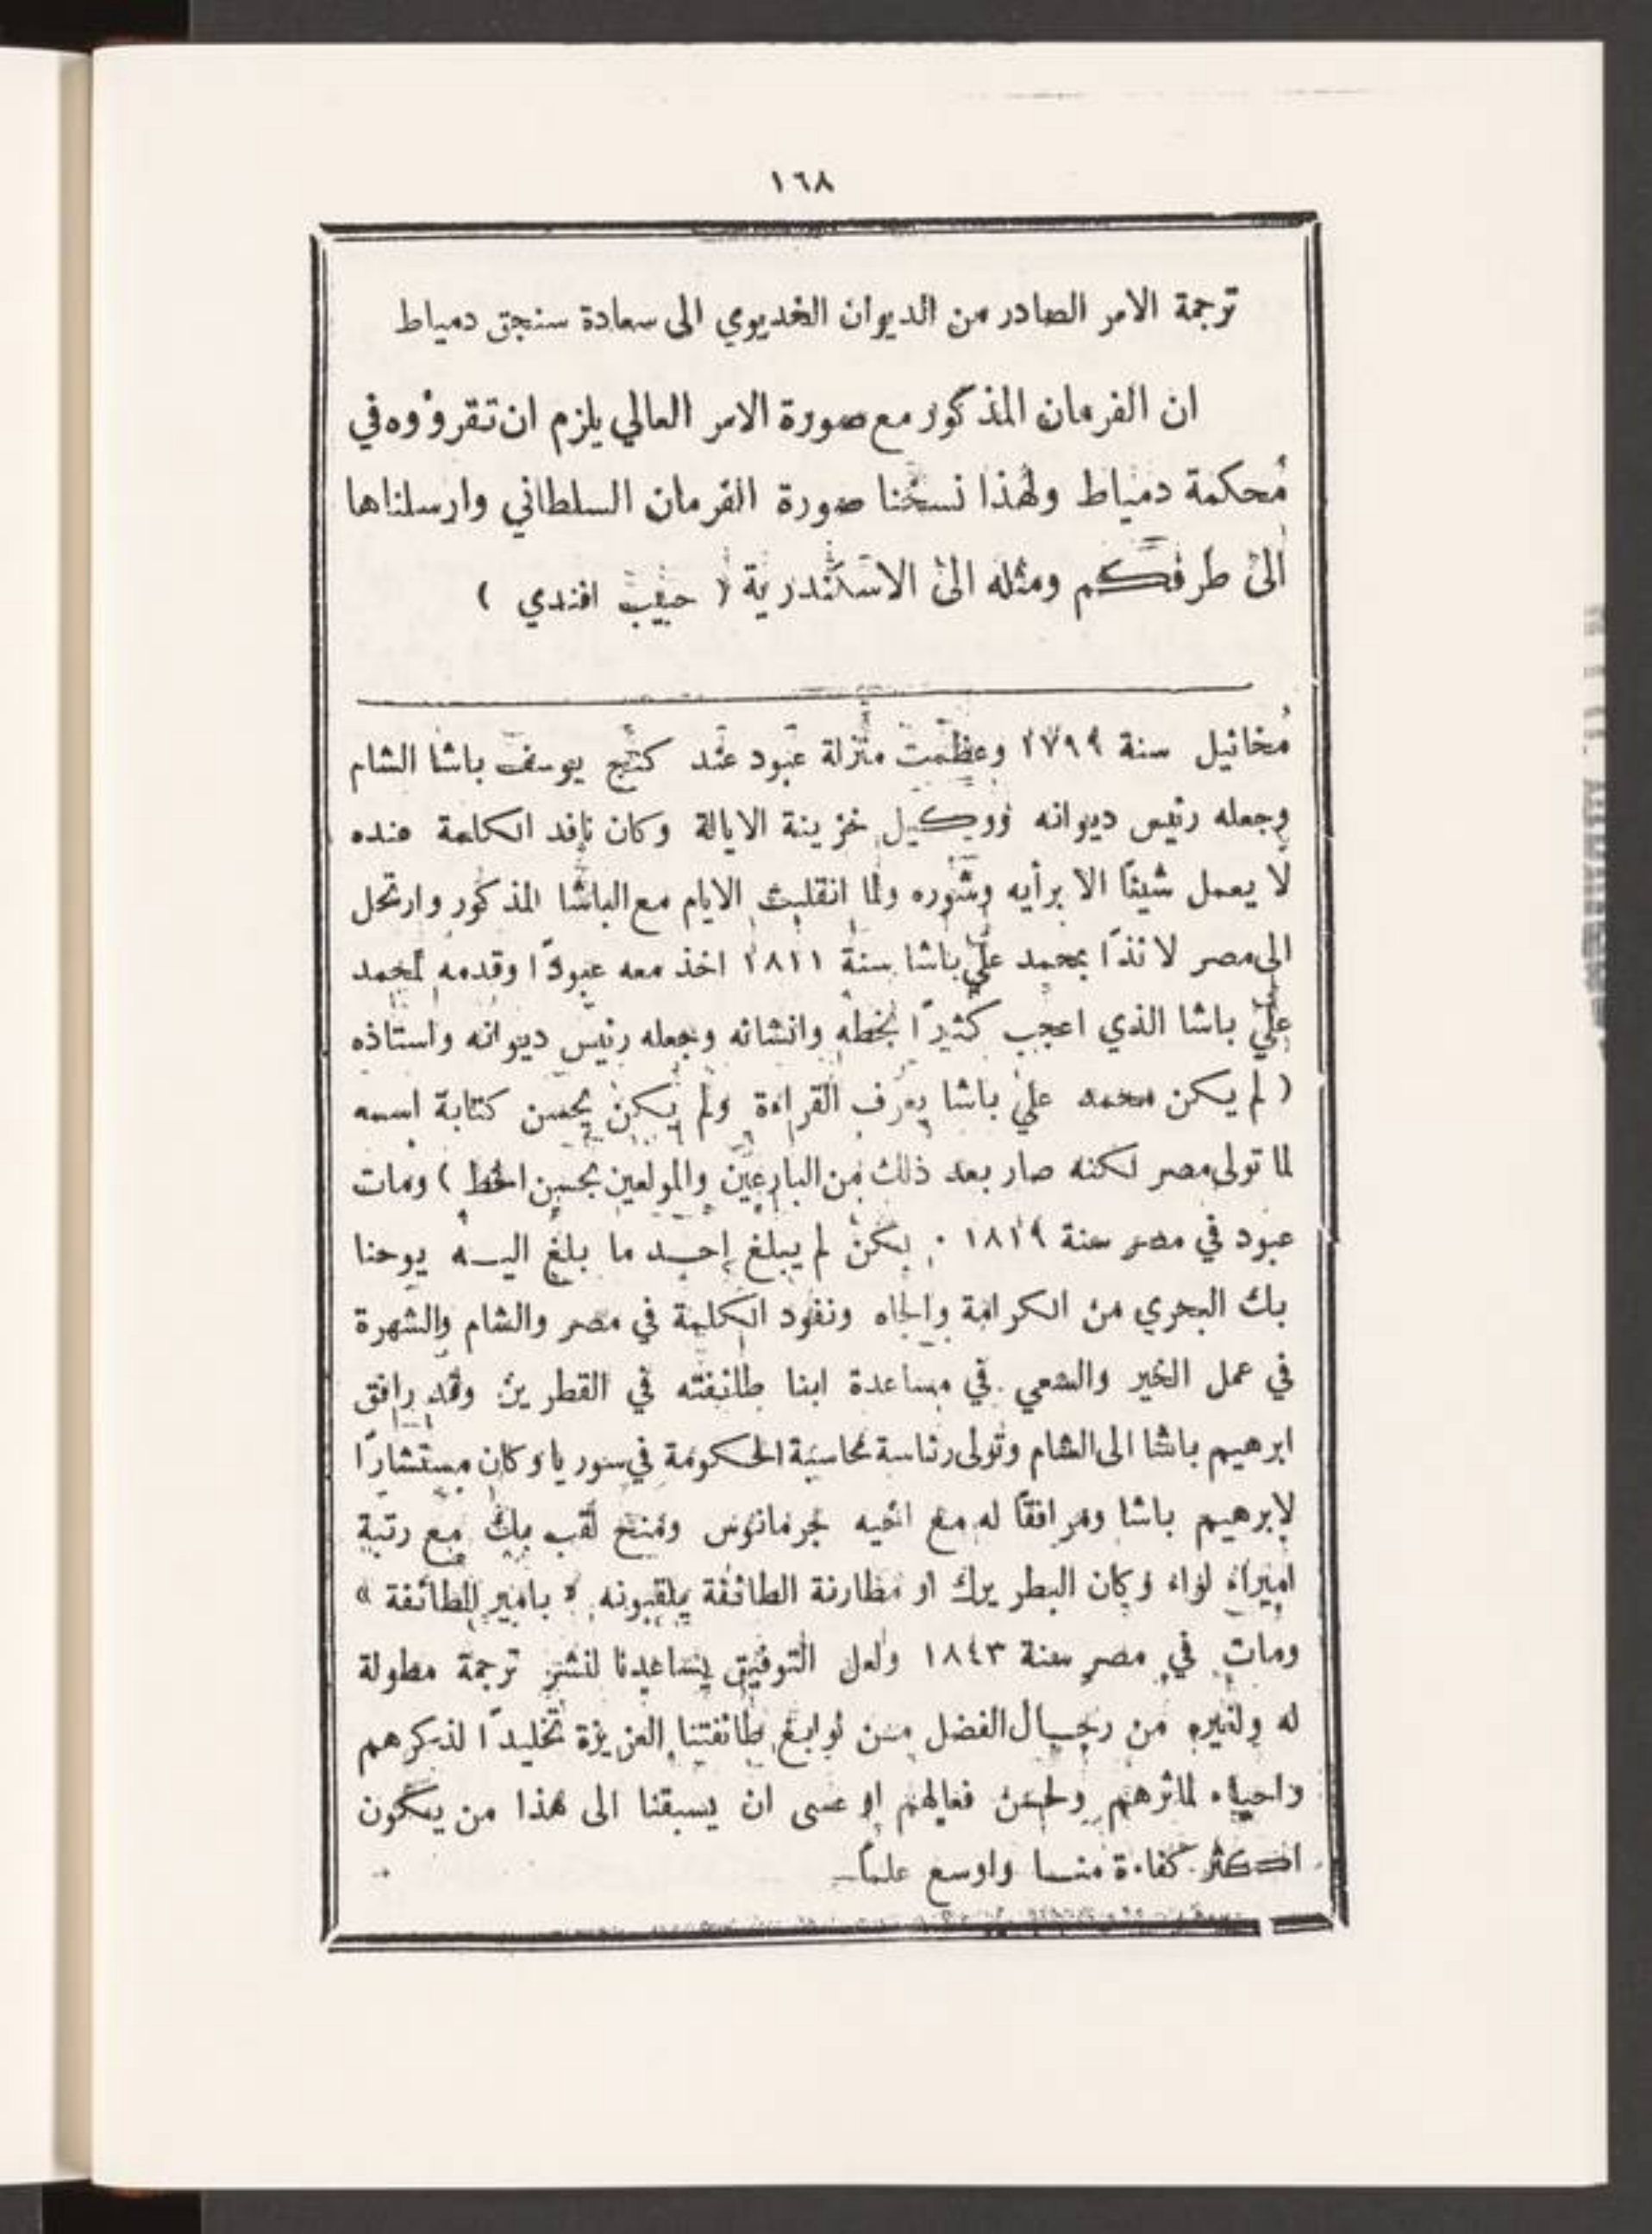 ١٦٨
ترجمة الامر الصادر من الديوان الخديوي الى سعادة سنجق دمياط
ان الفرمان المذكور مع صورة الامر العالي يلزم ان تقروْوه في
محكمة دمياط ولهذا نسخنا صورة الفرمان السلطاني وارسلناها
الى طرفكم ومثله الى الاسكندرية ( حبيب افندي )
مخائيل سنة ١٧٩٩ وعظمت منزلة عبود عند كنج يوسف باشا الشام
وجعله رئيس ديوانه ووكيل خزينة الايالة وكان نافد الكلمة عنده
لا يعمل شيئًا الا برأيه وشوره ولما انقلبت الايام مع الباشا المذكور وارتحل
الى مصر لائذًا بمحمد علي باشا سنة ١٨١١ اخذ معه عبودًا وقدمه لمحمد
علي باشا الذي اعجب كثيرًا بخطه وانشائه وجعله رئيس ديوانه واستاذه
( لم يكن محمد علي باشا يعرف القراءة ولم يكن يحسن كتابة اسمه
لما تولى مصر لكنه صار بعد ذلك من البارعين والمولعين بحسن الخط ) ومات
عبود في مصر سنة ١٨١٩ . لكن لم يبلغ احد ما بلغ اليه يوحنا
بك البحري من الكرامة والجاه ونفود الكلمة في مصر والشام والشهرة
في عمل الخير والسعي في مساعدة ابنا طائفته في القطرين وقد رافق
ابرهيم باشا الى الشام وتولى رئاسة محاسبة الحكومة في سوريا وكان مستشارًا
لابرهيم باشا ومرافقًا له مع اخيه جرمانوس ومنح لقب بك مع رتبة
اميراء لواء وكان البطريرك او مطارنة الطائفة يلقبونه « بامير الطائفة »
ومات في مصر سنة ١٨٤٣ ولعل التوفيق يساعدنا لنشر ترجمة مطولة
له ولغيره من رجال الفضل من نوابغ طائفتنا العزيزة تخليدًا لذكرهم
واحياء لماثرهم ولحسن فعالهم او عسى ان يسبقنا الى هذا من يكون
اكثر كفاءة منا واوسع علمًا